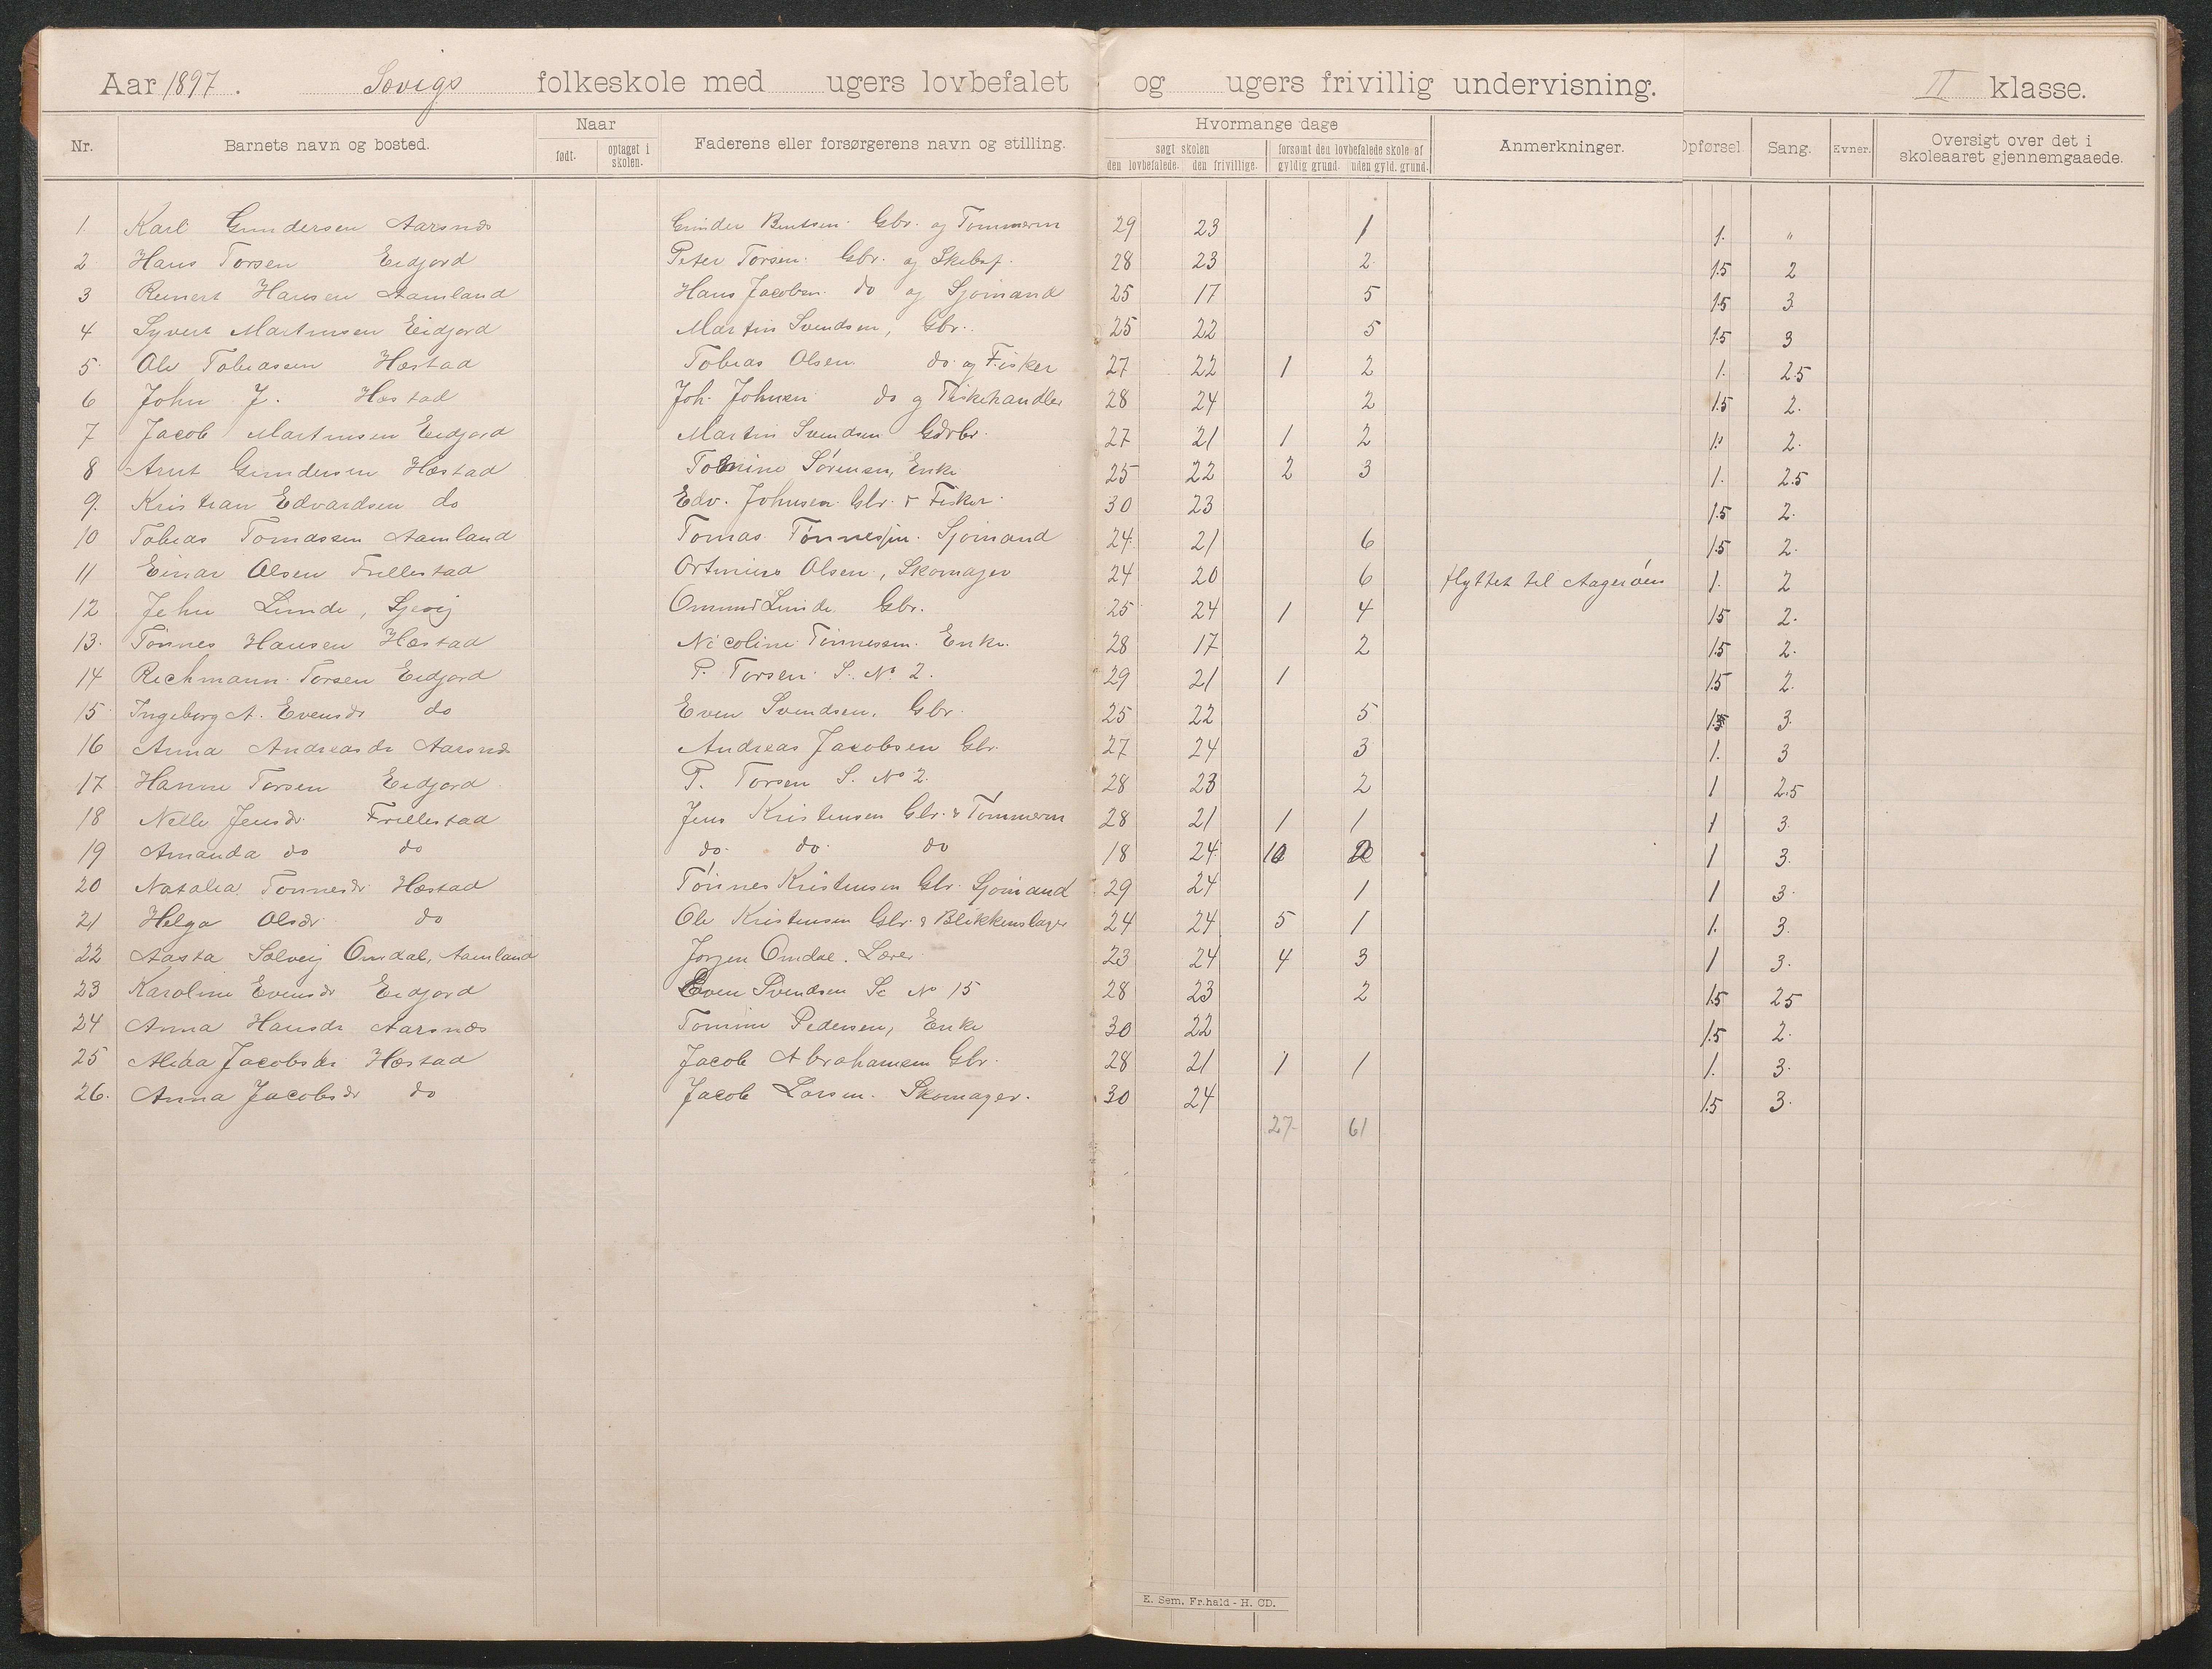 Aar 1897. Sovigs folkeskole med ugers lovbefalet og ugers frivillig undervisning. II klasse.
Nr. Barnets navn og bosted. Naar født. optaget i skolen. Faderens eller forsørgerens navn og stilling. Hvormange dage søgt skolen den lovbefalede. den frivillige. forsømt den lovbefalede skole af gyldig grund. uden gyld. grund. Anmerkninger. Opførsel. Sang. Evner. Oversigt over det i skoleaaret gjennemgaaede.
1 Karl Gundersen Aarsnæs Gunder Bentsen Gbr. og Tømmerm 29 23 1 1. "
2 Hans Torsen Eidjord Peter Torsen. Gbr. og Skibsf. 28 23 2 1.5 2
3 Reinert Hansen Aamland Hans Jacobsen do og Sjømand 25 17 5 1.5 3
4 Syvert Martinsen Eidjord Martin Svendsen, Gbr. 25 22 5 1.5 3
5. Ole Tobiassen Hæstad Tobias Olsen do og Fisker 27 22 1 2 1. 2.5
6 John J. Hæstad Joh. Johnsen do og Fiskehandler 28 24 2 1.5 2.
7 Jacob Martinsen Eidjord Martin Svendsen Gdbr. 27 21 1 2 1. 2.
8 Arnt Gundersen Hæstad Tomine Sørensen, Enke 25 22 2 3 1. 2.5
9. Kristian Edvardsen do Edv. Johnsen Gbr. & Fisker 30 23 1.5 2.
10 Tobias Tomassen Aamland Tomas Tønnessen. Sjømand 24 21 6 1.5 2.
11 Einar Olsen Frillestad Ortinius Olsen, Skomager 24 20 6 flyttet til Aagerøen 1. 2
12 John Lunde, Sjevig Omund Lunde Gbr. 25 24 1 4 1.5 2.
13. Tønnes Hansen Hæstad Nicoline Tønnessen. Enke. 28 17 2 1.5 2.
14 Richmann Torsen Eidjord P. Torsen. S. No 2. 29 21 1 1.5 2.
15 Ingeborg A. Evensdr do Even Svendsen. Gbr. 25 22 5 1.5 3.
16 Anna Andreasdr Aarsnæs Andreas Jacobsen Gbr. 27 24 3 1. 3
17 Hanne Torsen Eidjord P. Torsen S. No 2. 28 23 2 1 2.5
18 Nelle Jensdr. Frillestad Jens Kristensen Gbr. & Tømmerm 28 21 1 1 1 3.
19 Amanda do do do. do. do 18 24 10 2 1 3.
20 Natalia Tønnesdr Hæstad Tønnes Kristensen Gbr. Sjømand 29 24 1 1 3.
21 Helga Olsdr do Ole Kristensen Gbr. & Blikkenslager 24 24 5 1 1. 3.
22 Aasta Solveig Omdal, Aamland Jørgen Omdal. Lærer 23 24 4 3 1 3.
23 Karoline Evensdr Eidjord Even Svendsen Se No 15 28 23 2 1.5 2.5
24 Anna Hansdr Aarsnæs Tomine Pedersen, Enke 30 22 1.5 2.
25 Alida Jacobsdr Hæstad Jacob Abrahamsen Gbr. 28 21 1 1 1. 3.
26. Anna Jacobsdr do Jacob Larsen. Skomager. 30 24 1.5 3.
27 61
E. Sem. Fr.hald - H. CD.